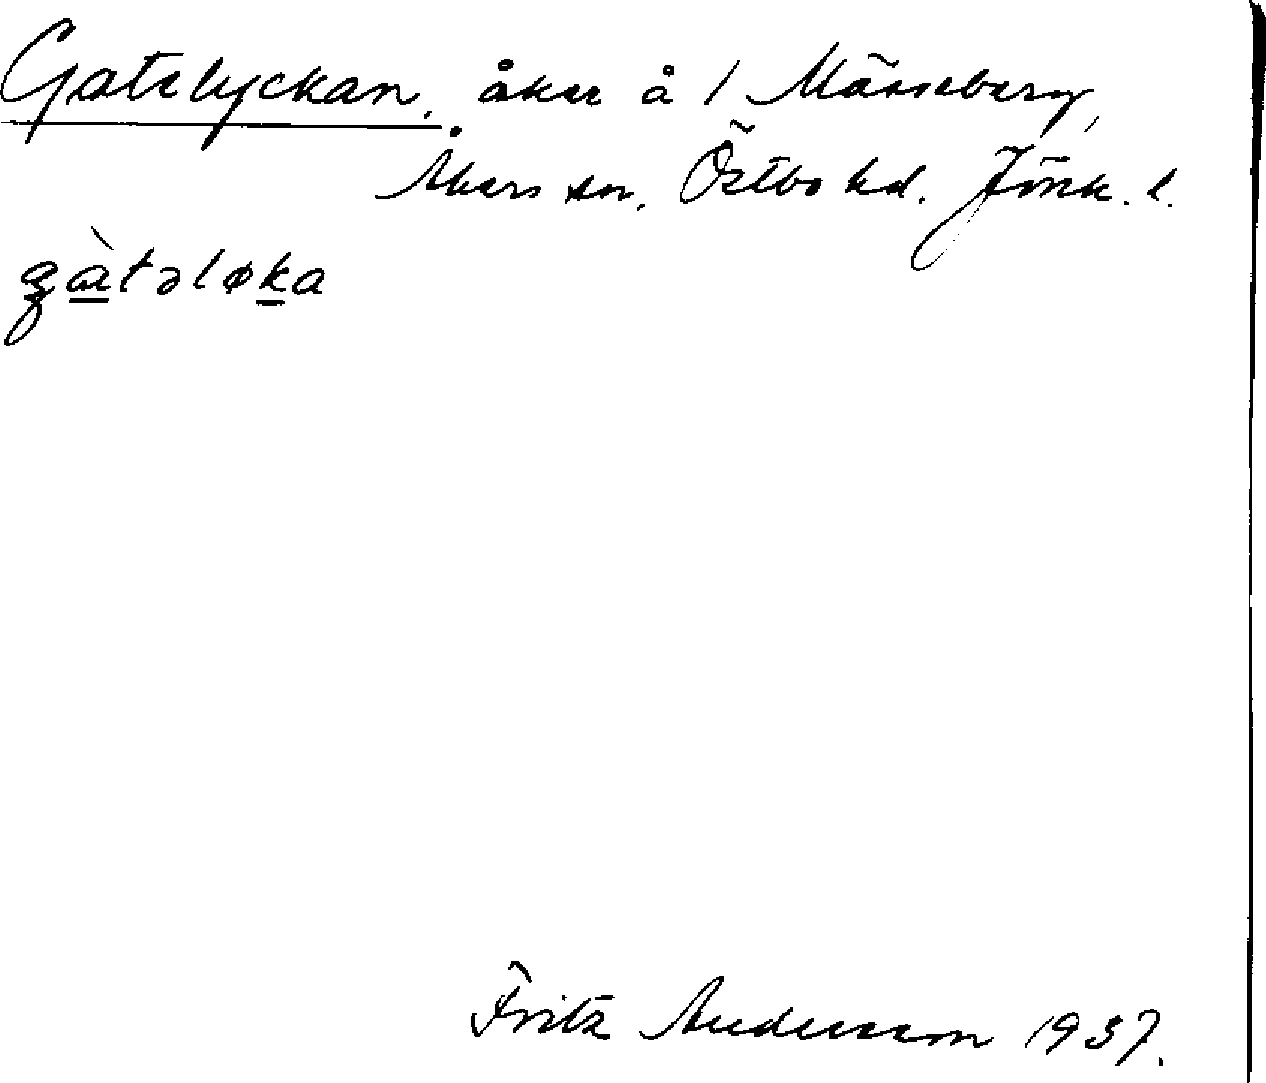 Gatelyckan, åker å 1 Mässeberg,
Åkers sn. Östbo hd. Jönk. l.
gàtəløka
Fritz Andersson 1937.